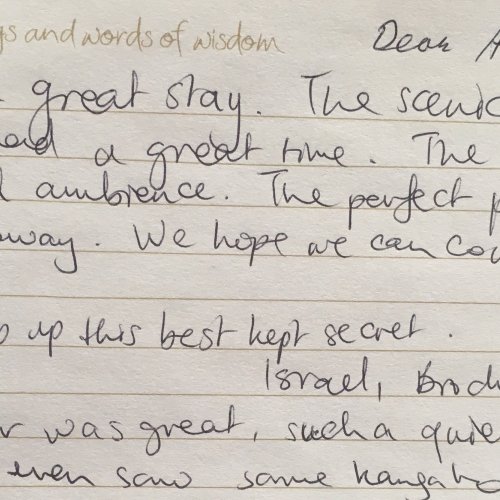 gs and words of wisdom Dear A
great stay. The scenic
had a great time. The
ambience. The perfect p
away. We hope we can co
up this best kept secret.
Israel,
r was great, such a quie
even saw some kanga